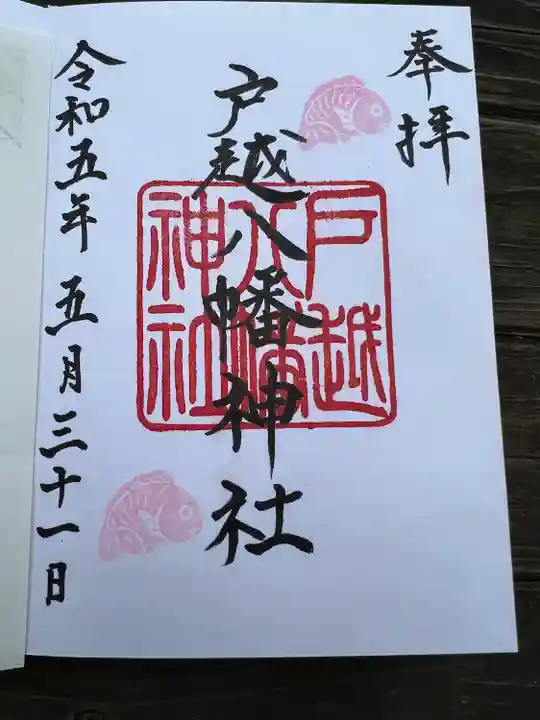 奉拝
戸越八幡神社
戸越
八幡
神社
令和五年五月三十一日